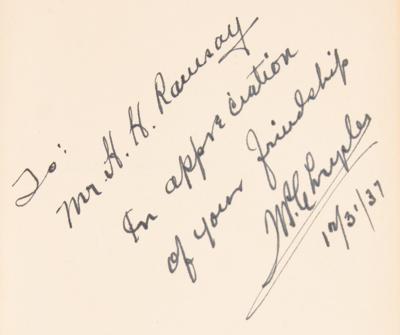 To:
Mr. H. H. Ramsay
In appreciation
of your friendship
W.P. Chrysler
12/31/37